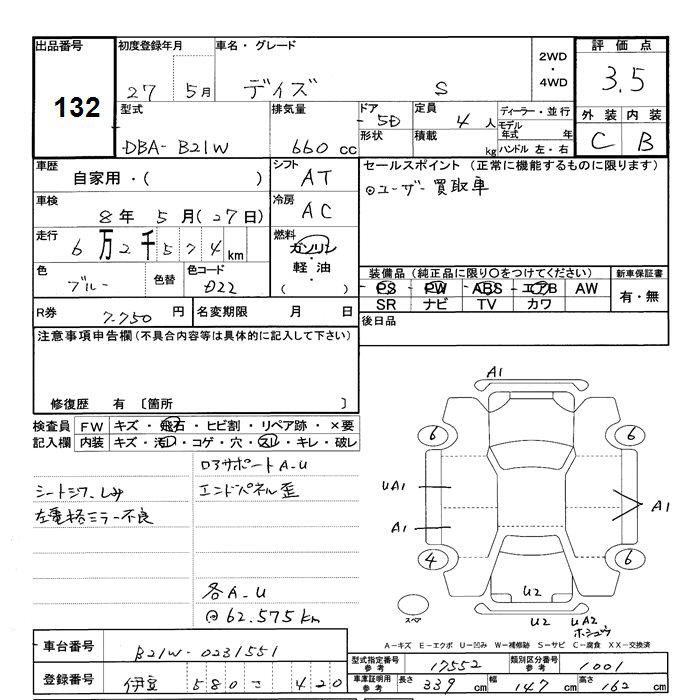 出品番号 初度登録年月 車名・グレード 2WD・4WD 評価点
132 27 5月 デイズ S 3.5
型式 排気量 ドア 5D 定員 4人 ディーラー・並行 外装 内装
DBA- B21W 660 cc 形状 積載 kg モデル年式 年 ハンドル 左・右 C B
車歴 自家用・( ) シフト AT セールスポイント (正常に機能するものに限ります)
車検 8年 5月(27日) 冷房 AC ⊙ユーザー買取車
走行 6万2千574km 燃料 ガソリン・軽油・( )
色 ブルー 色替 色コード D22 装備品 (純正品に限り○をつけてください) 新車保証書
PS PW ABS エアB AW 有・無
SR ナビ TV カワ
R券 7.750円 名変期限 月 日 後日品
注意事項申告欄 (不具合内容等は具体的に記入して下さい)
修復歴 有 〔箇所 〕
検査員 FW キズ・飛石・ヒビ割・リペア跡・×要
記入欄 内装 キズ・汚れ・コゲ・穴・スレ・キレ・破レ
ロアサポートA-U
シートシワ.しみ エンドパネル歪
左電格ミラー不良
各A-U
⊙62.575km
A1
6 6
UA1
A1 A1
4 6
U2
スペア U2 UA2
ホシュウ
A-キズ E-エクボ U-凹み W-補修跡 S-サビ C-腐食 XX-交換済
車台番号 B21W-0231551 型式指定番号 参考 17552 類別区分番号 参考 1001
登録番号 伊豆 580 こ 420 車庫証明用 参考 長さ 339 cm 幅 147 cm 高さ 162 cm